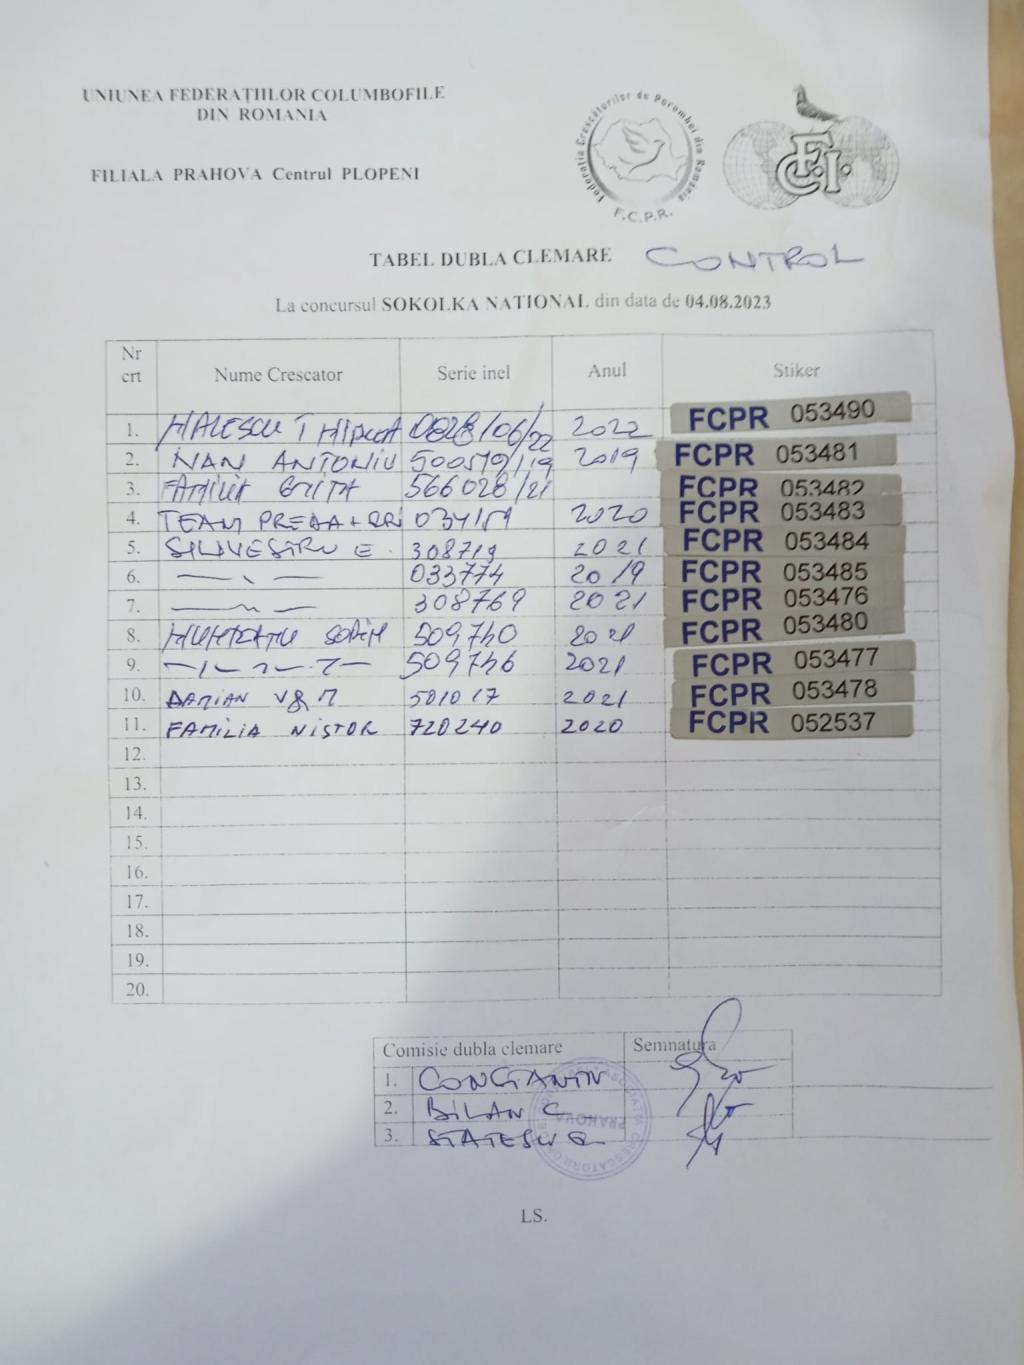 UNIUNEA FEDERAŢIILOR COLUMBOFILE
DIN ROMANIA
FILIALA PRAHOVA Centrul PLOPENI
Federatia Crescătorilor de Porumbei din Romania
F.C.P.R.
F.C.I.
TABEL DUBLA CLEMARE CONTROL
La concursul SOKOLKA NATIONAL din data de 04.08.2023
Nr crt Nume Crescator Serie inel Anul Stiker
1. 2022 FCPR 053490
2. NAN ANTONIU 2019 FCPR 053481
3. FAMILIA 566028/21 FCPR 053482
4. TEAM PREDA + 2020 FCPR 053483
5. SILIVESTRU E. 308719 2021 FCPR 053484
6. 033774 2019 FCPR 053485
7. 308769 2021 FCPR 053476
8. SORIN 509740 2021 FCPR 053480
9. 509746 2021 FCPR 053477
10. DAMIAN V&M 501017 2021 FCPR 053478
11. FAMILIA NISTOR 720240 2020 FCPR 052537
12.
13.
14.
15.
16.
17.
18.
19.
20.
Comisie dubla clemare Semnatura
1. CONSTANTIN
2. BILAN C
3. STATESCU
PRAHOVA
LS.